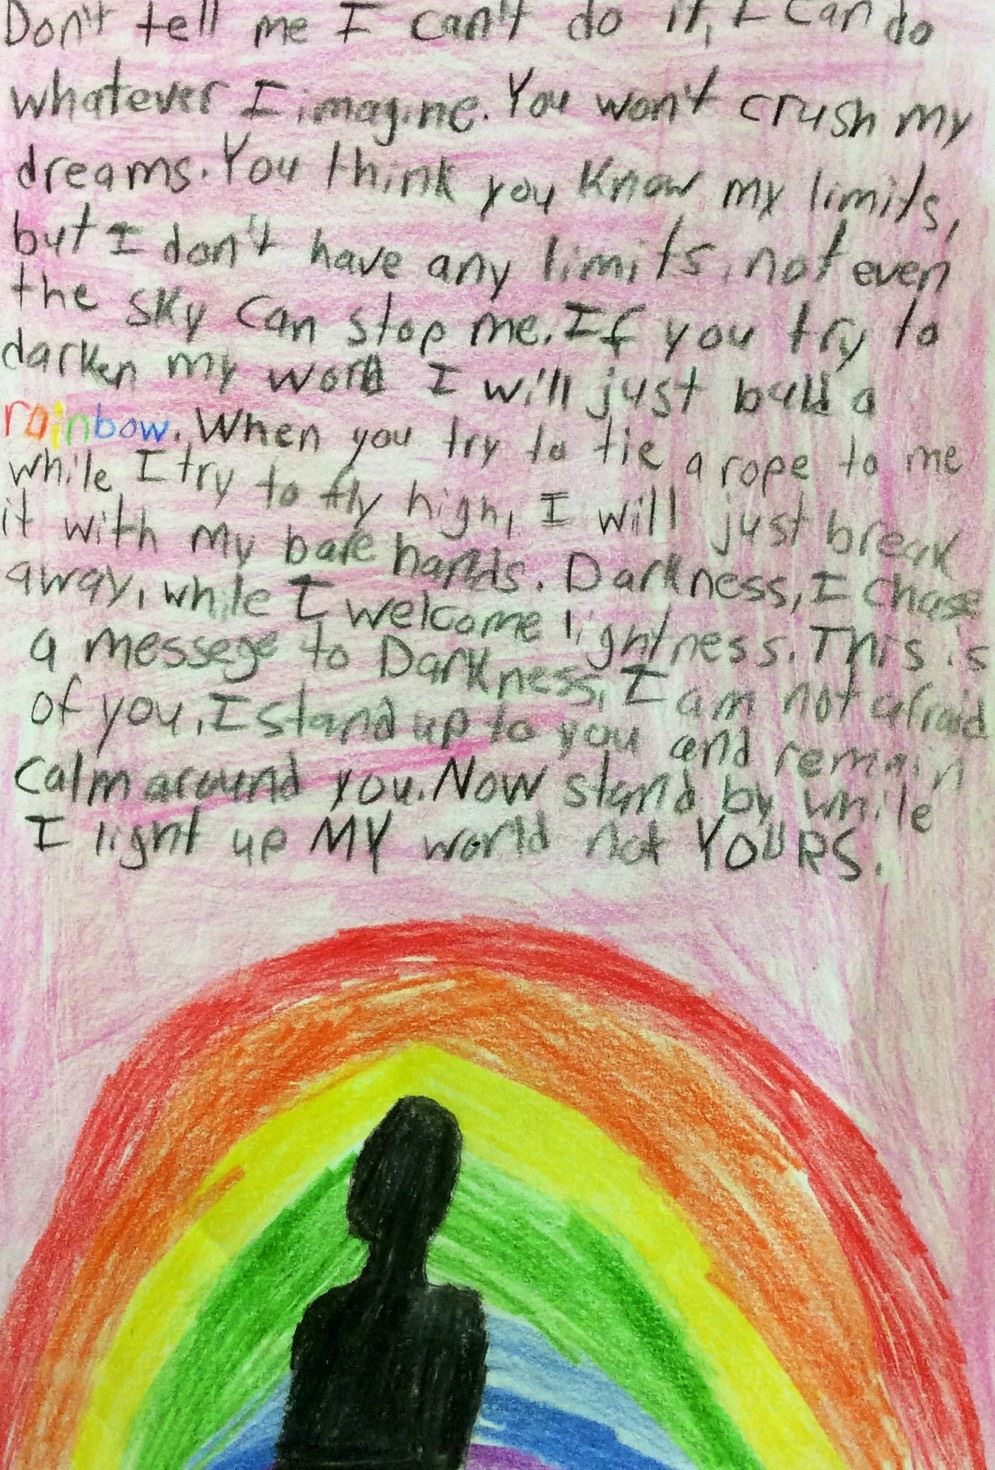 Don't tell me I can't do it, I can do
whatever I imagine. You won't crush my
dreams. You think you know my limits,
but I don't have any limits, not even
the sky can stop me. If you try to
darken my world I will just build a
rainbow. When you try to tie a rope to me
while I try to fly high, I will just break
it with my bare hands. Darkness, I chase
away, while I welcome lightness. This is
a messege to Darkness, I am not afraid
of you, I stand up to you and remain
calm around you. Now stand by while
I light up MY world not YOURS.